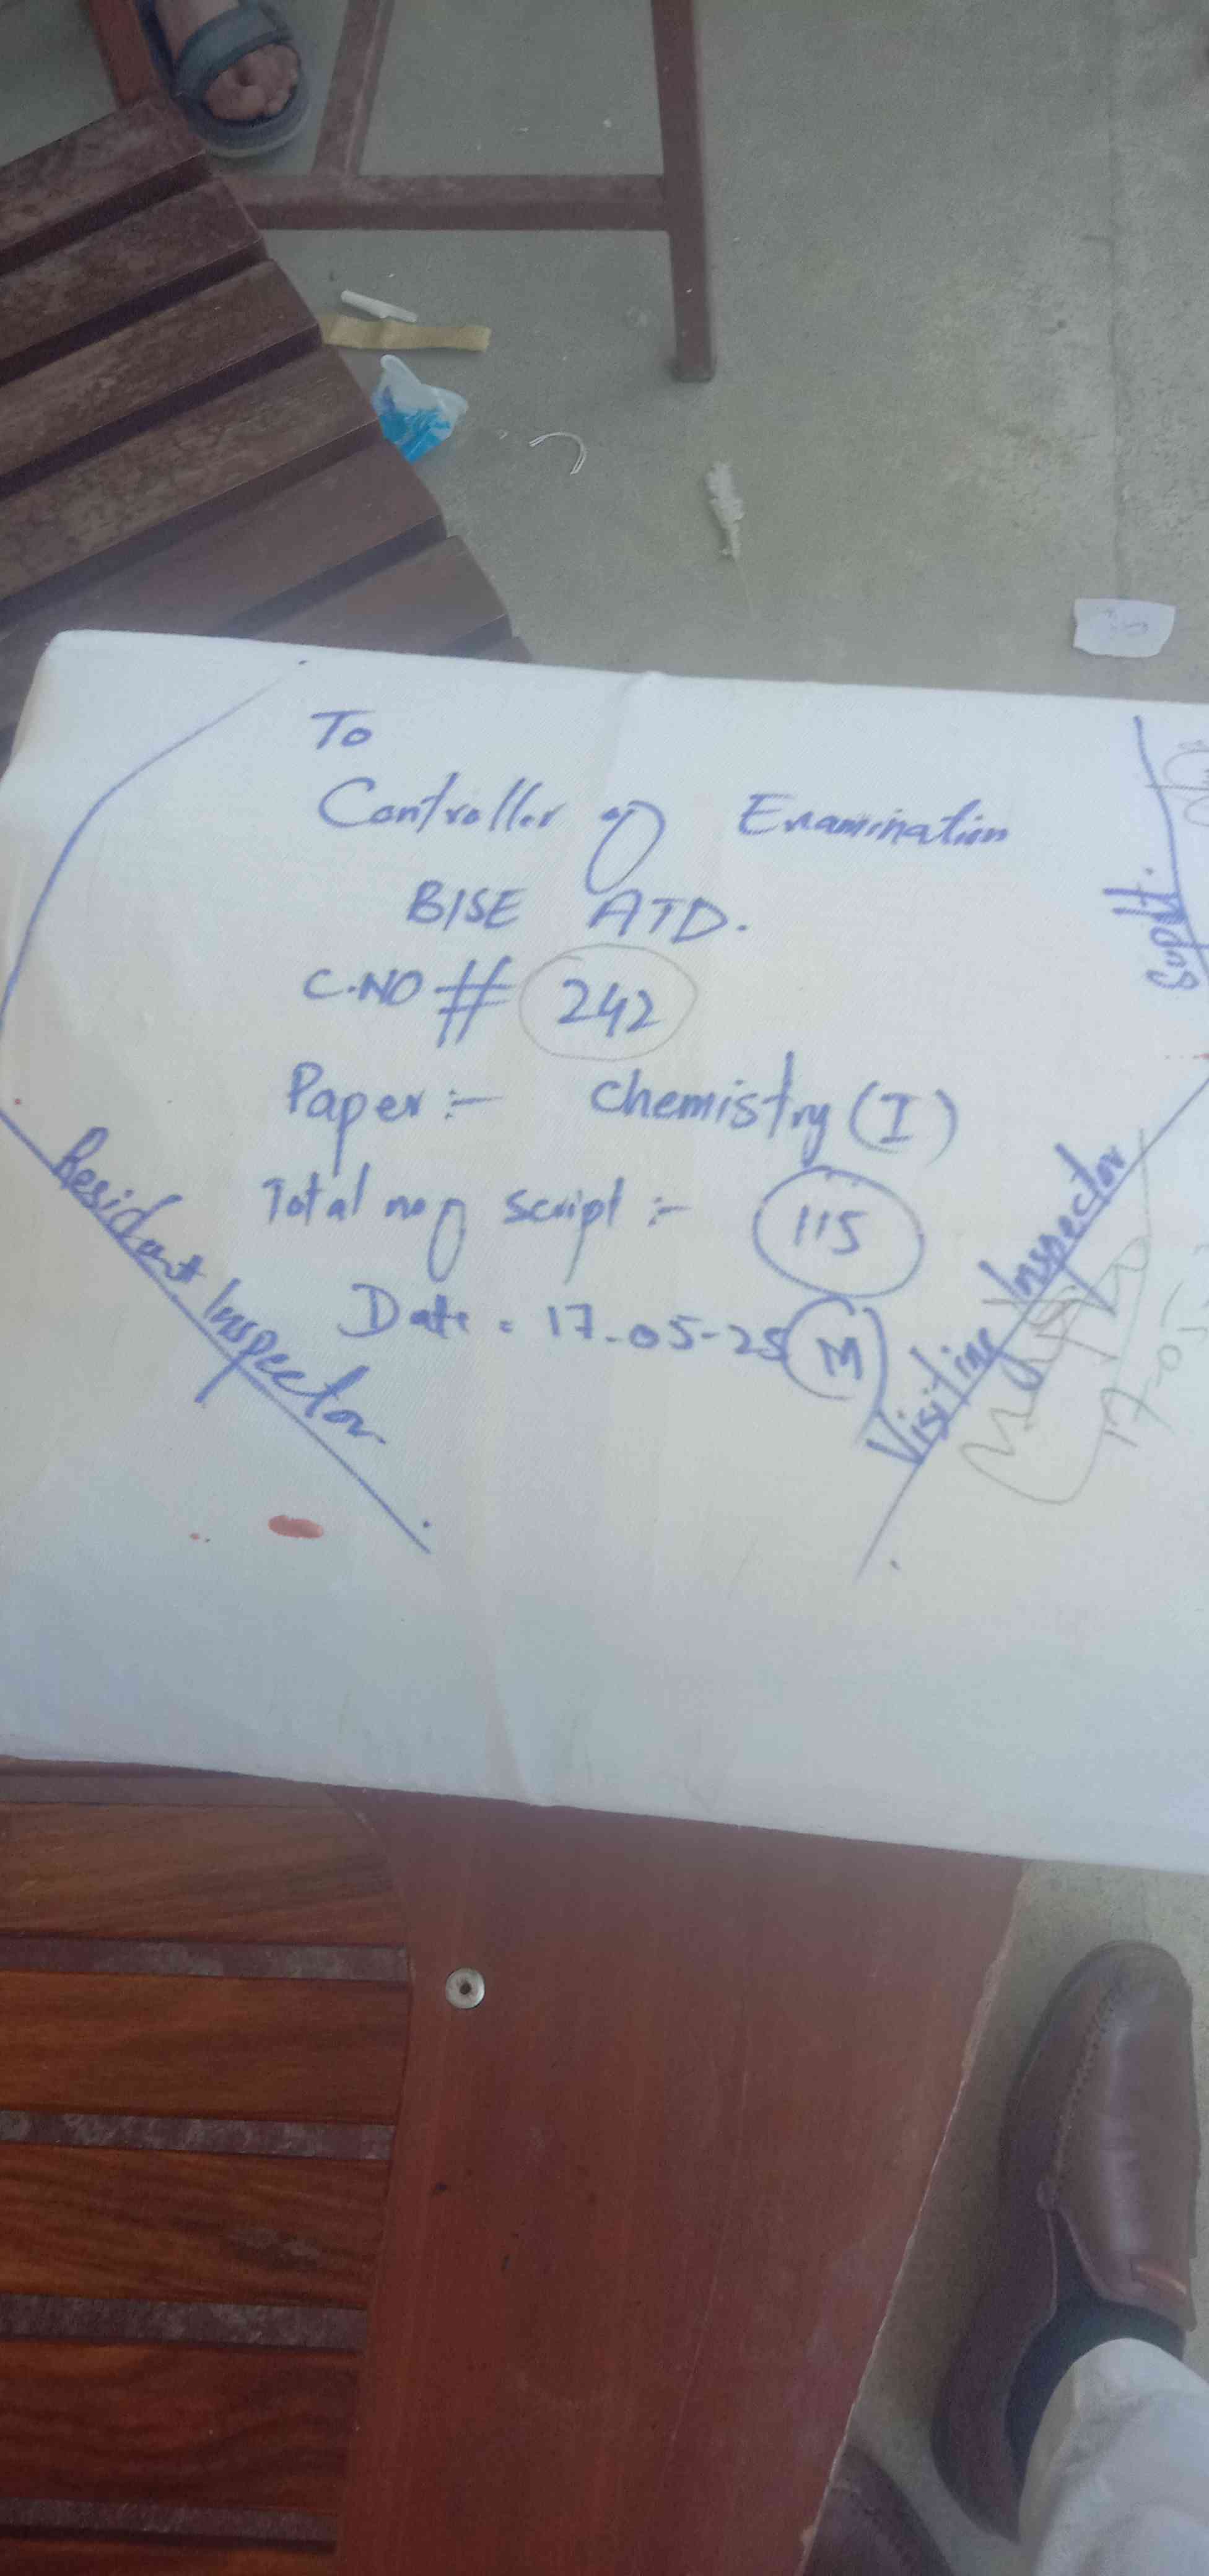 To
Controller of Examination
BISE ATD.
C.NO # 242
Paper :- Chemistry (I)
Total no of script :- 115
Date = 17-05-25 (M)
Resident Inspector
Visiting Inspector
17-05-
Supdt.